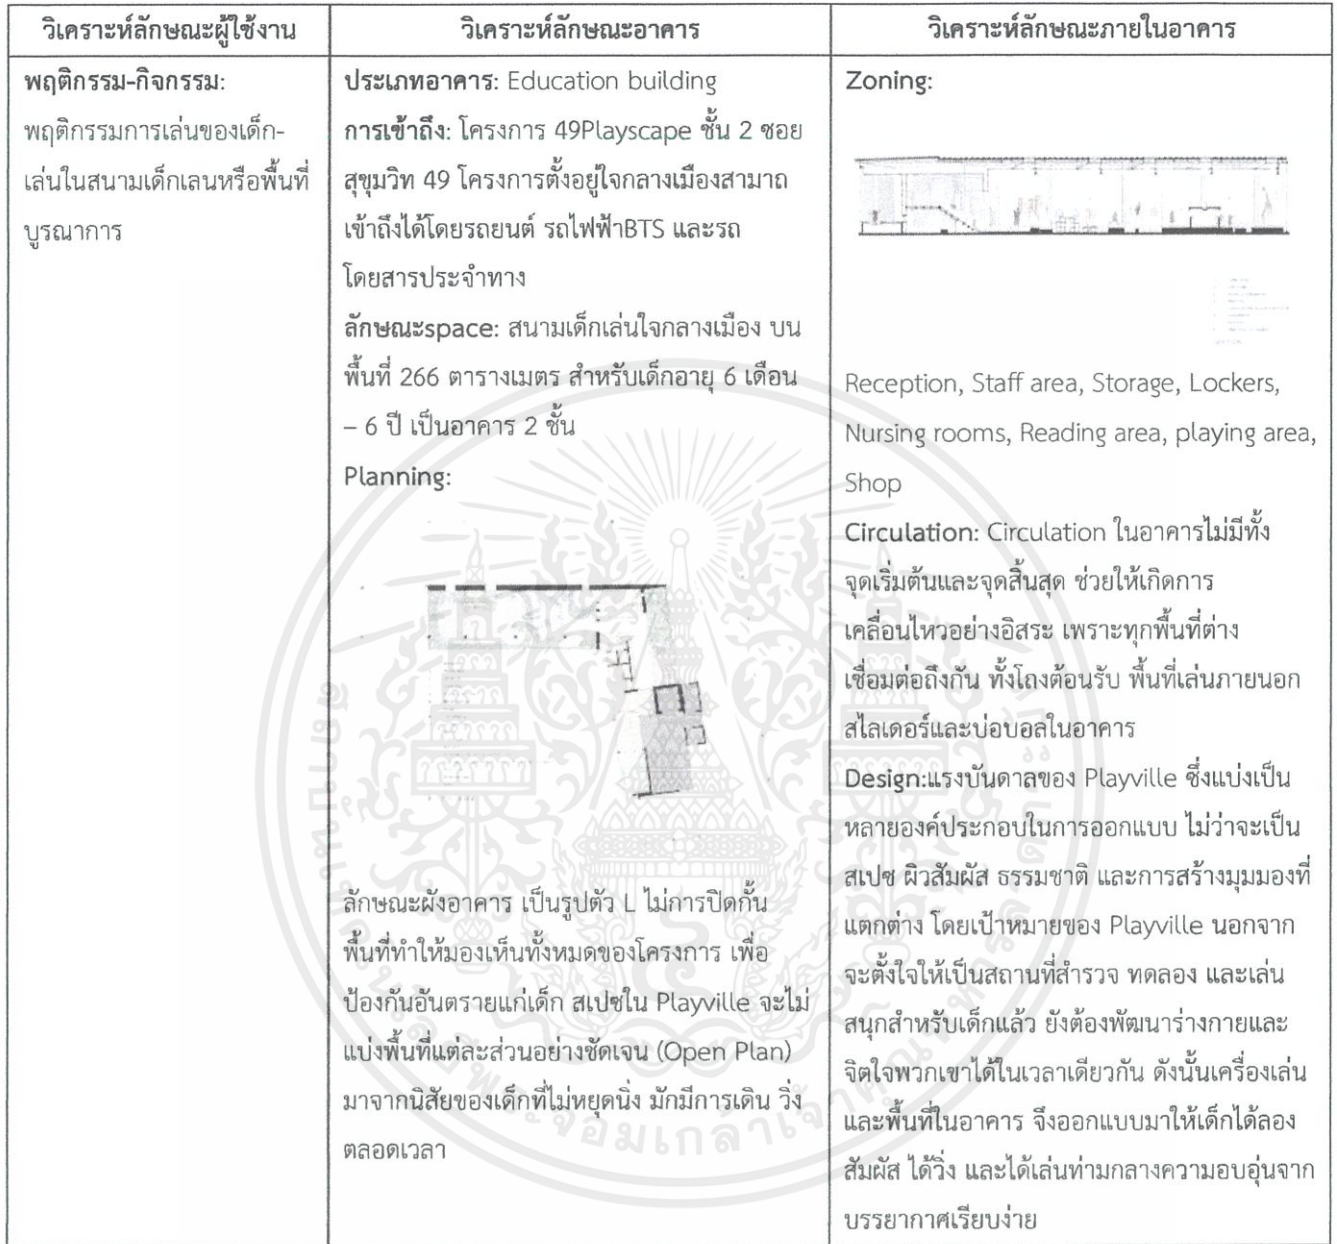 วิเคราะห์ลักษณะผู้ใช้งาน
วิเคราะห์ลักษณะอาคาร
วิเคราะห์ลักษณะภายในอาคาร
พฤติกรรม-กิจกรรม:
พฤติกรรมการเล่นของเด็ก-
เล่นในสนามเด็กเลนหรือพื้นที่
บูรณาการ
ประเภทอาคาร: Education building
การเข้าถึง: โครงการ 49Playscape ชั้น 2 ซอย
สุขุมวิท 49 โครงการตั้งอยู่ใจกลางเมืองสามาถ
เข้าถึงได้โดยรถยนต์ รถไฟฟ้าBTS และรถ
โดยสารประจำทาง
ลักษณะspace: สนามเด็กเล่นใจกลางเมือง บน
พื้นที่ 266 ตารางเมตร สำหรับเด็กอายุ 6 เดือน
– 6 ปี เป็นอาคาร 2 ชั้น
Planning:
ลักษณะผังอาคาร เป็นรูปตัว L ไม่การปิดกั้น
พื้นที่ทำให้มองเห็นทั้งหมดของโครงการ เพื่อ
ป้องกันอันตรายแก่เด็ก สเปซใน Playville จะไม่
แบ่งพื้นที่แต่ละส่วนอย่างชัดเจน (Open Plan)
มาจากนิสัยของเด็กที่ไม่หยุดนิ่ง มักมีการเดิน วิ่ง
ตลอดเวลา
Zoning:
Reception, Staff area, Storage, Lockers,
Nursing rooms, Reading area, playing area,
Shop
Circulation: Circulation ในอาคารไม่มีทั้ง
จุดเริ่มต้นและจุดสิ้นสุด ช่วยให้เกิดการ
เคลื่อนไหวอย่างอิสระ เพราะทุกพื้นที่ต่าง
เชื่อมต่อถึงกัน ทั้งโถงต้อนรับ พื้นที่เล่นภายนอก
สไลเดอร์และบ่อบอลในอาคาร
Design:แรงบันดาลของ Playville ซึ่งแบ่งเป็น
หลายองค์ประกอบในการออกแบบ ไม่ว่าจะเป็น
สเปซ ผิวสัมผัส ธรรมชาติ และการสร้างมุมมองที่
แตกต่าง โดยเป้าหมายของ Playville นอกจาก
จะตั้งใจให้เป็นสถานที่สำรวจ ทดลอง และเล่น
สนุกสำหรับเด็กแล้ว ยังต้องพัฒนาร่างกายและ
จิตใจพวกเขาได้ในเวลาเดียวกัน ดังนั้นเครื่องเล่น
และพื้นที่ในอาคาร จึงออกแบบมาให้เด็กได้ลอง
สัมผัส ได้วิ่ง และได้เล่นท่ามกลางความอบอุ่นจาก
บรรยากาศเรียบง่าย